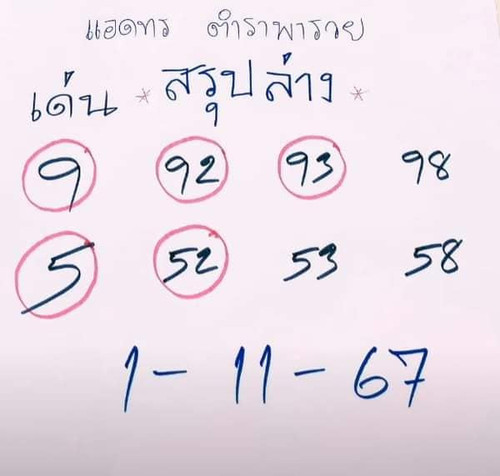 แอดทร ตำราพารวย
เด่น * สรุปล่าง *
9 92 93 98
5 52 53 58
1 - 11 - 67